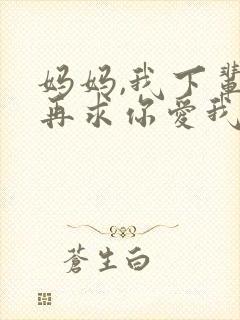 妈妈,我下輩
再求你爱我
蒼生白